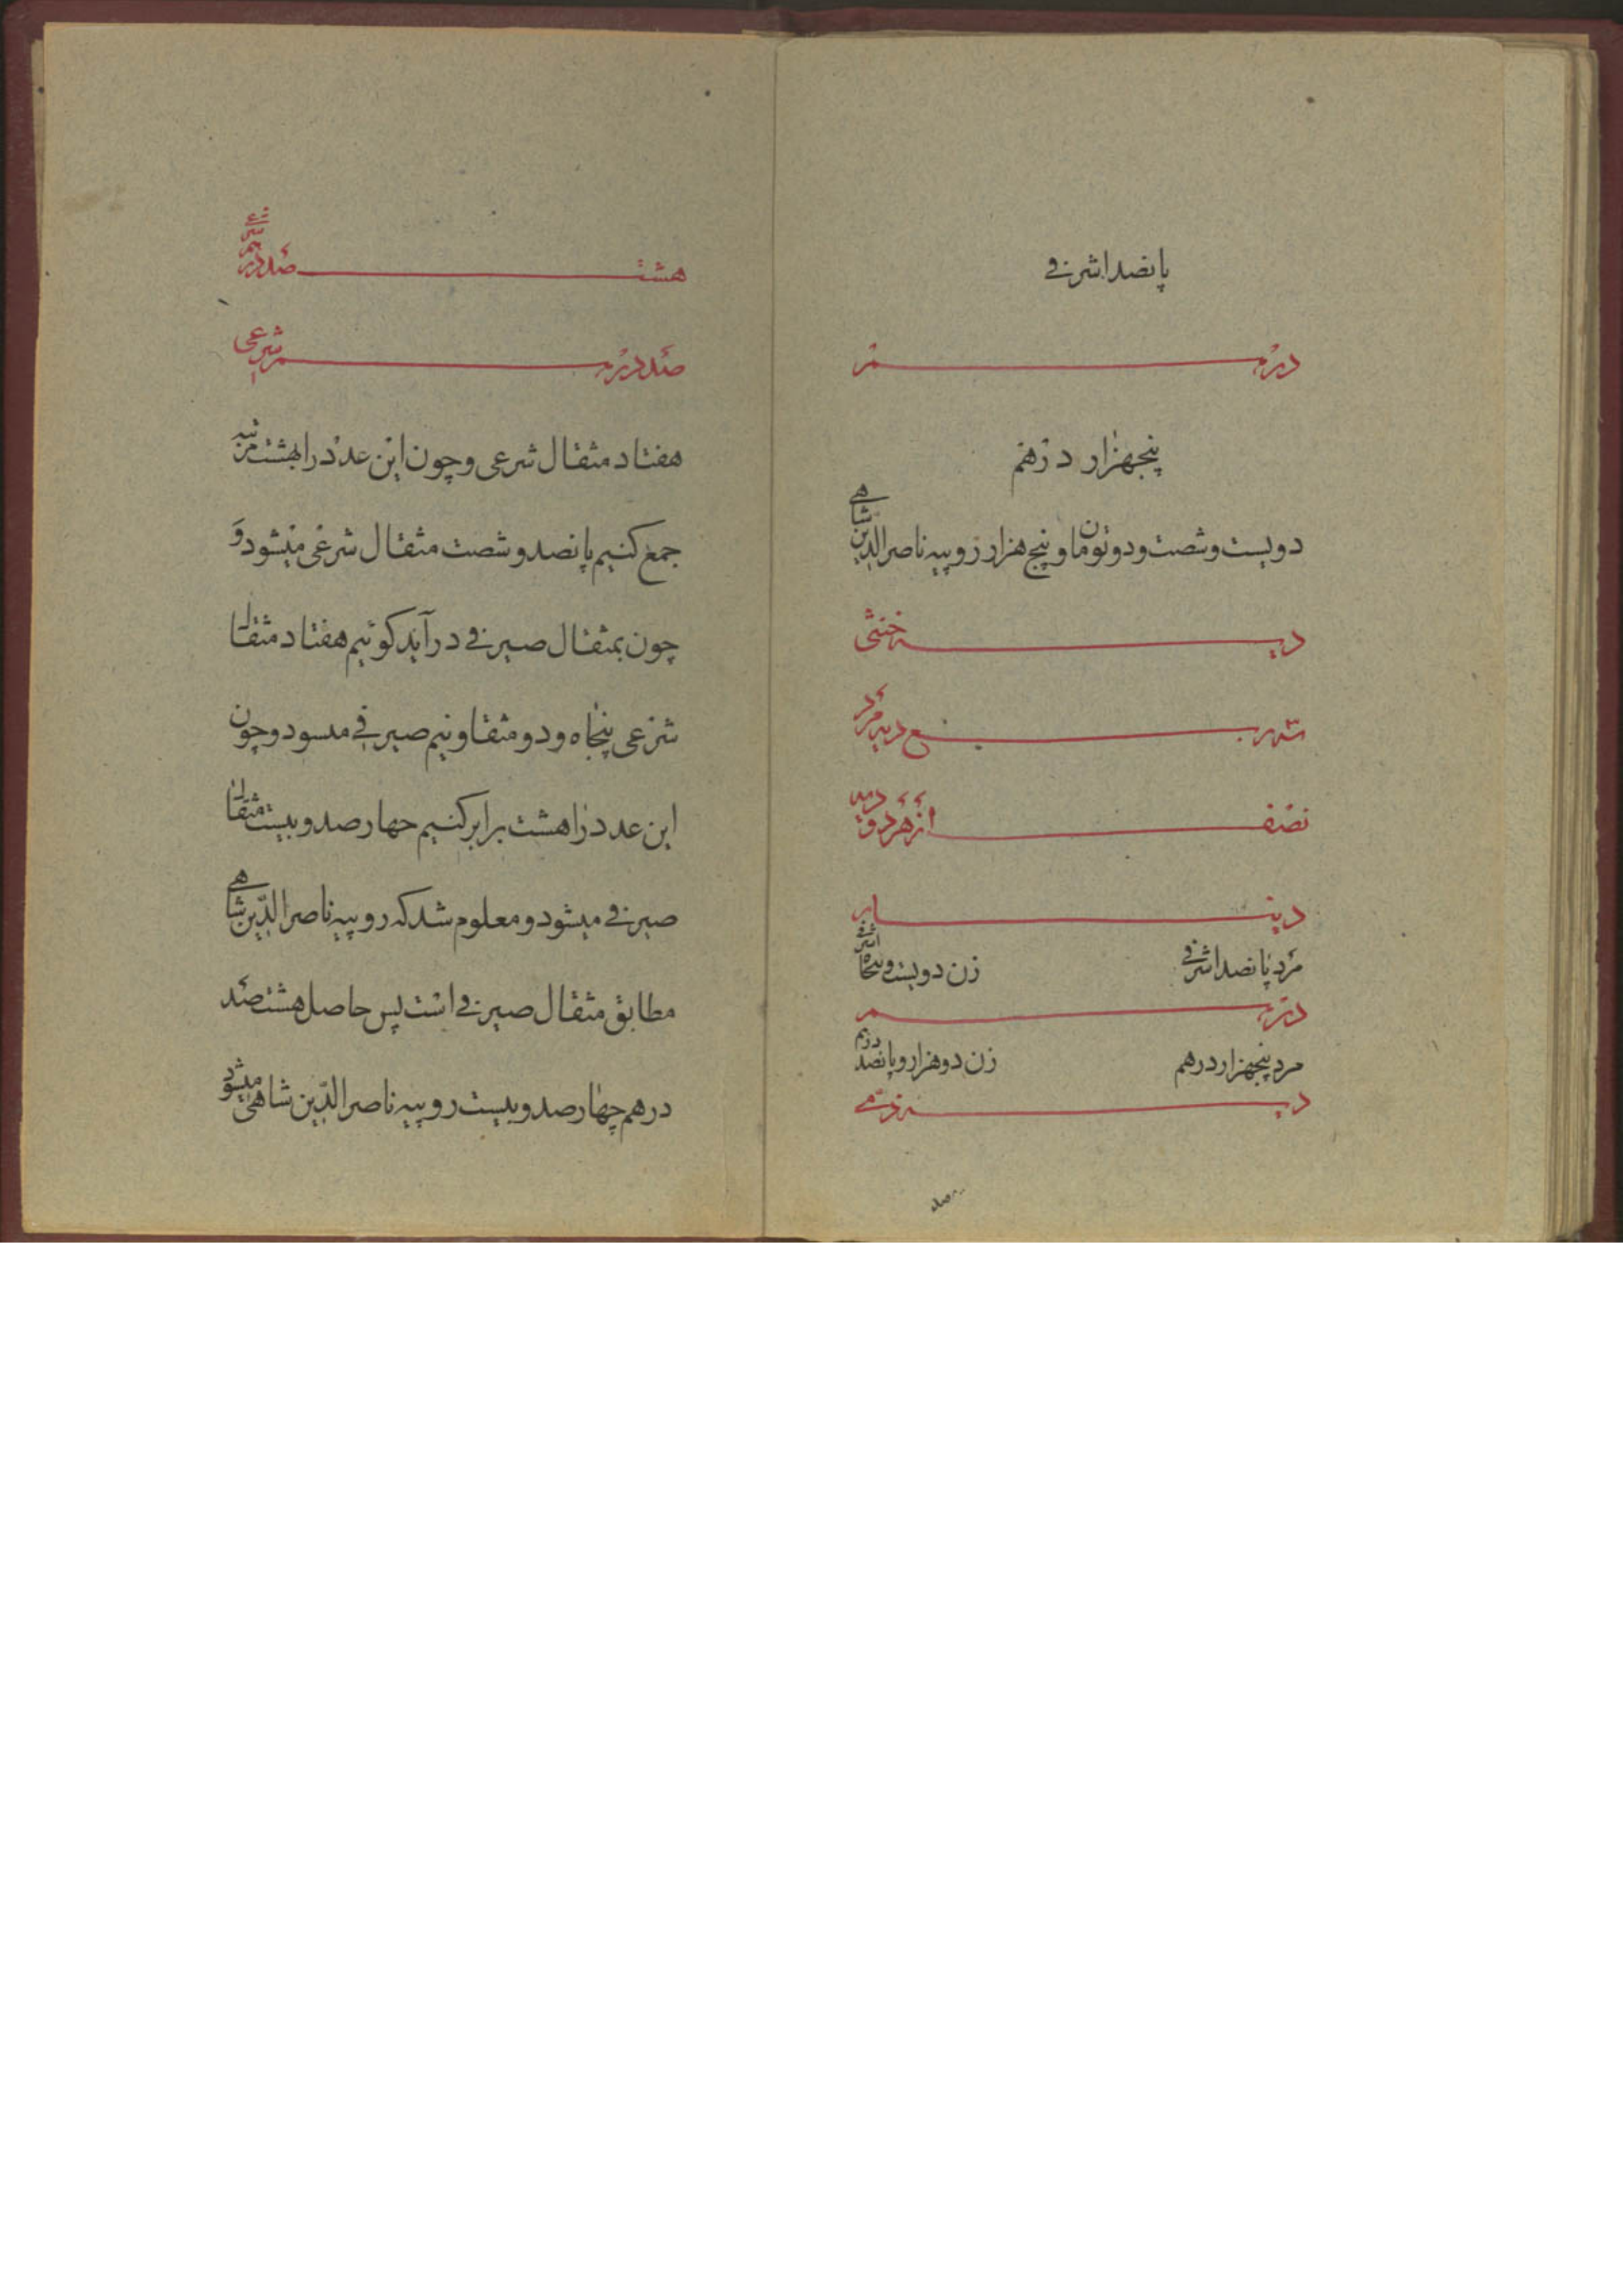 پانصد اشرفی
درهم
پنجهزار درهم
دویست و شصت و دو تومان و پنج هزار روپیه ناصرالدین شاهی
دیه خنثی
ربع دیه مرد
نصف از هر دو دیه
دینار
مرد پانصد اشرفی زن دویست و پنجاه اشرفی
درهم
مرد پنجهزار درهم زن دو هزار و پانصد درهم
دیه ذمی
هشت صد درهم شرعی
صد درهم شرعی
هفتاد مثقال شرعی و چون این عدد را بهشت مرتبه
جمع کنیم پانصد و شصت مثقال شرعی میشود و
چون بمثقال صیرفی درآید کوئیم هفتاد مثقال
شرعی پنجاه و دو مثقال و نیم صیرفی میشود و چون
این عدد را هشت برابر کنیم چهارصد و بیست مثقال
صیرفی میشود و معلوم شد که روپیه ناصرالدّین شاهی
مطابق مثقال صیرفی است پس حاصل هشتصد
درهم چهارصد و بیست روپیه ناصرالدّین شاهی میشود